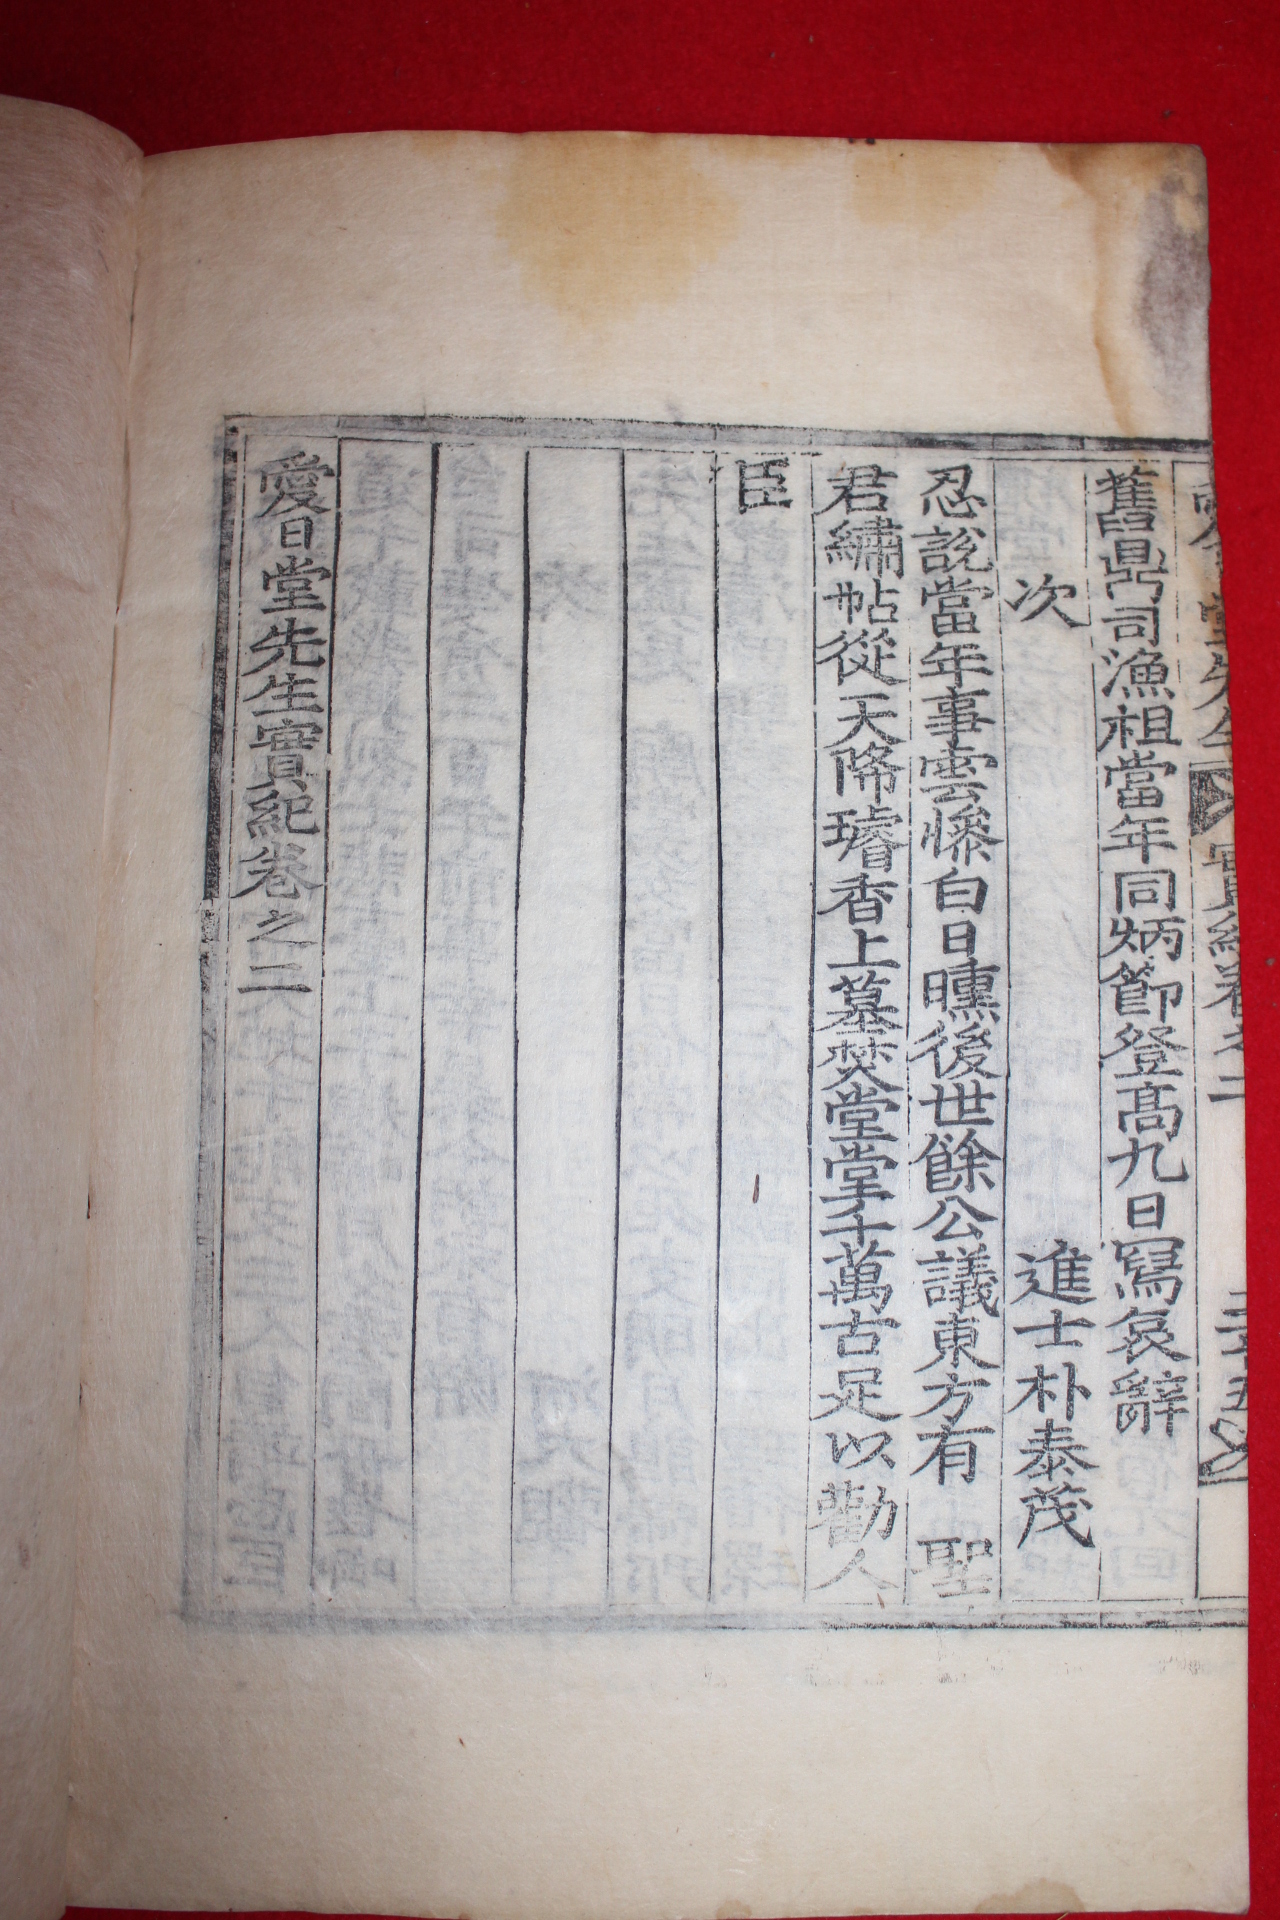 舊鼎司漁祖當年同炳節登髙九日寫哀辭
次 進士朴泰茂
忍說當年事雲慘白日曛後世餘公議東方有 聖
君繡帖從天降璿香上墓焚堂堂千萬古足以勸人
臣
愛日堂先生實紀卷之二